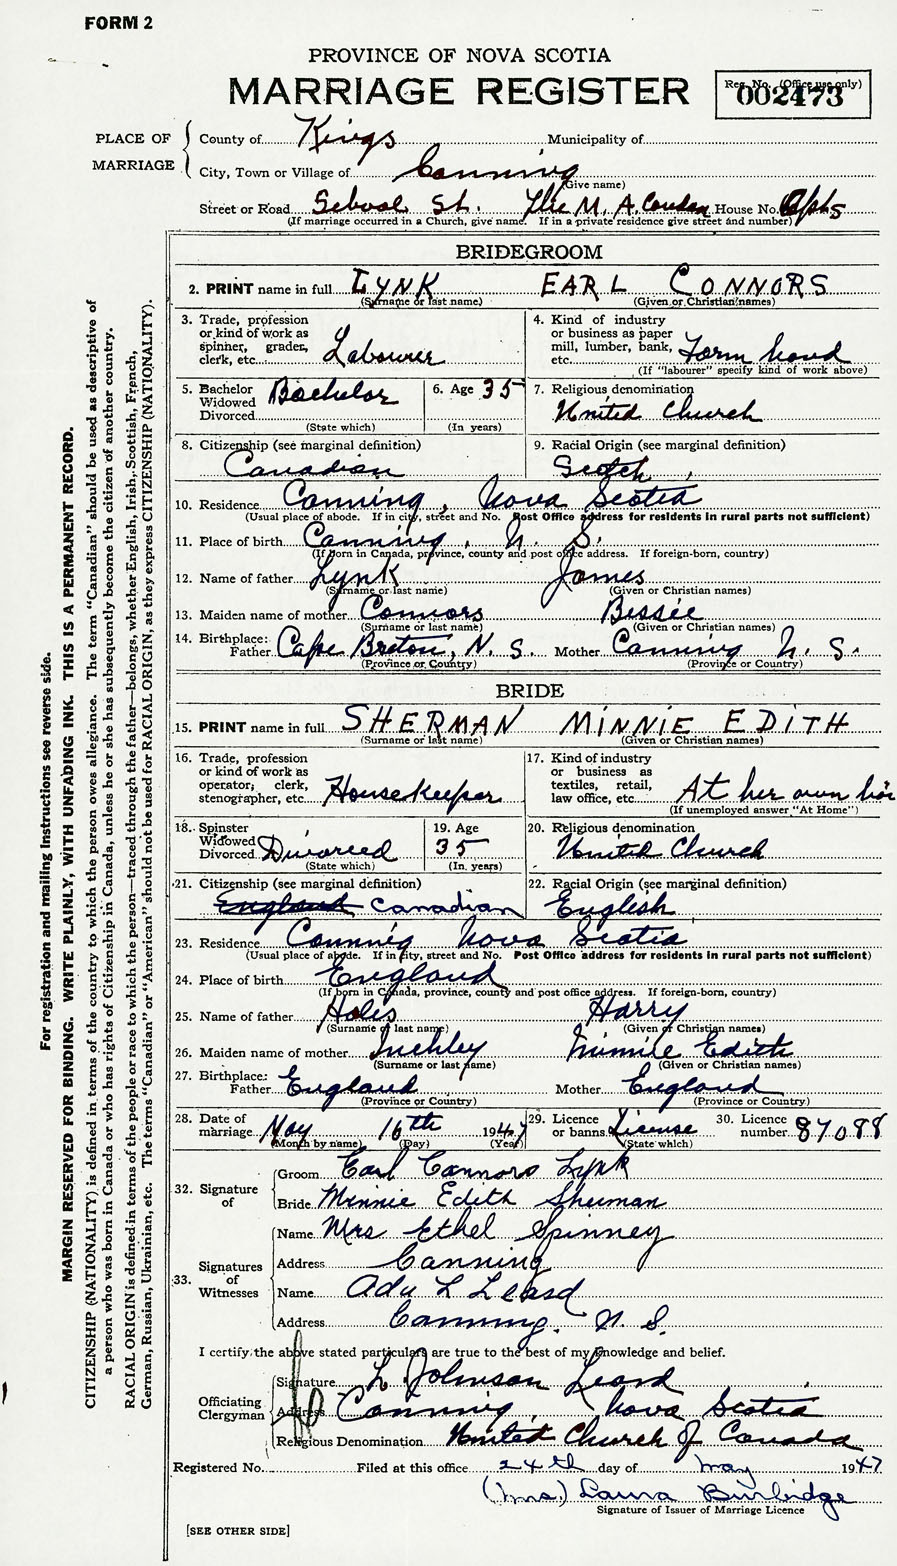 FORM 2
PROVINCE OF NOVA SCOTIA
MARRIAGE REGISTER
Reg. No. (Office use only)
002473
PLACE OF MARRIAGE
County of Kings Municipality of
City, Town or Village of Canning
(Give name)
Street or Road School St. The M. A. House No. Apts
(If marriage occurred in a Church, give name. If in a private residence give street and number)
BRIDEGROOM
2. PRINT name in full LYNK EARL CONNORS
(Surname or last name) (Given or Christian names)
3. Trade, profession or kind of work as spinner, grader, clerk, etc. Labourer
4. Kind of industry or business as paper mill, lumber, bank, etc. Farm hand
(If "labourer" specify kind of work above)
5. Bachelor Widowed Divorced Bachelor
(State which)
6. Age 35
(In years)
7. Religious denomination
United Church
8. Citizenship (see marginal definition)
Canadian
9. Racial Origin (see marginal definition)
Scotch
10. Residence Canning, Nova Scotia
(Usual place of abode. If in city, street and No. Post Office address for residents in rural parts not sufficient)
11. Place of birth Canning, N. S.
(If born in Canada, province, county and post office address. If foreign-born, country)
12. Name of father Lynk James
(Surname or last name) (Given or Christian names)
13. Maiden name of mother Connors Bessie
(Surname or last name) (Given or Christian names)
14. Birthplace: Father Cape Breton, N. S. Mother Canning N. S.
(Province or Country) (Province or Country)
BRIDE
15. PRINT name in full SHERMAN MINNIE EDITH
(Surname or last name) (Given or Christian names)
16. Trade, profession or kind of work as operator; clerk, stenographer, etc. Housekeeper
17. Kind of industry or business as textiles, retail, law office, etc. At her own
(If unemployed answer "At Home")
18. Spinster Widowed Divorced Divorced
(State which)
19. Age
35
(In years)
20. Religious denomination
United Church
21. Citizenship (see marginal definition)
England Canadian
22. Racial Origin (see marginal definition)
English
23. Residence Canning Nova Scotia
(Usual place of abode. If in city, street and No. Post Office address for residents in rural parts not sufficient)
24. Place of birth England
(If born in Canada, province, county and post office address. If foreign-born, country)
25. Name of father Holes Harry
(Surname or last name) (Given or Christian names)
26. Maiden name of mother Minnie Edith
(Surname or last name) (Given or Christian names)
27. Birthplace: Father England Mother England
(Province or Country) (Province or Country)
28. Date of marriage May 16th 1947
(Month by name) (Day) (Year)
29. Licence or banns License
(State which)
30. Licence number 87088
32. Signature of
Groom Earl Connors Lynk
Bride Minnie Edith Sherman
33. Signatures of Witnesses
Name Mrs Ethel Spinney
Address Canning
Name Ada L Leard
Address Canning. N. S.
I certify the above stated particulars are true to the best of my knowledge and belief.
Officiating Clergyman
Signature L Johnson Leard
Address Canning, Nova Scotia
Religious Denomination United Church of Canada
Registered No. Filed at this office 24th day of May 1947
(Mrs.) Laura Burbidge
Signature of Issuer of Marriage Licence
[SEE OTHER SIDE]
For registration and mailing instructions see reverse side.
MARGIN RESERVED FOR BINDING. WRITE PLAINLY, WITH UNFADING INK. THIS IS A PERMANENT RECORD.
CITIZENSHIP (NATIONALITY) is defined in terms of the country to which the person owes allegiance. The term "Canadian" should be used as descriptive of
a person who was born in Canada or who has rights of Citizenship in Canada, unless he or she has subsequently become the citizen of another country.
RACIAL ORIGIN is defined in terms of the people or race to which the person—traced through the father—belongs, whether English, Irish, Scottish, French,
German, Russian, Ukrainian, etc. The terms "Canadian" or "American" should not be used for RACIAL ORIGIN, as they express CITIZENSHIP (NATIONALITY).